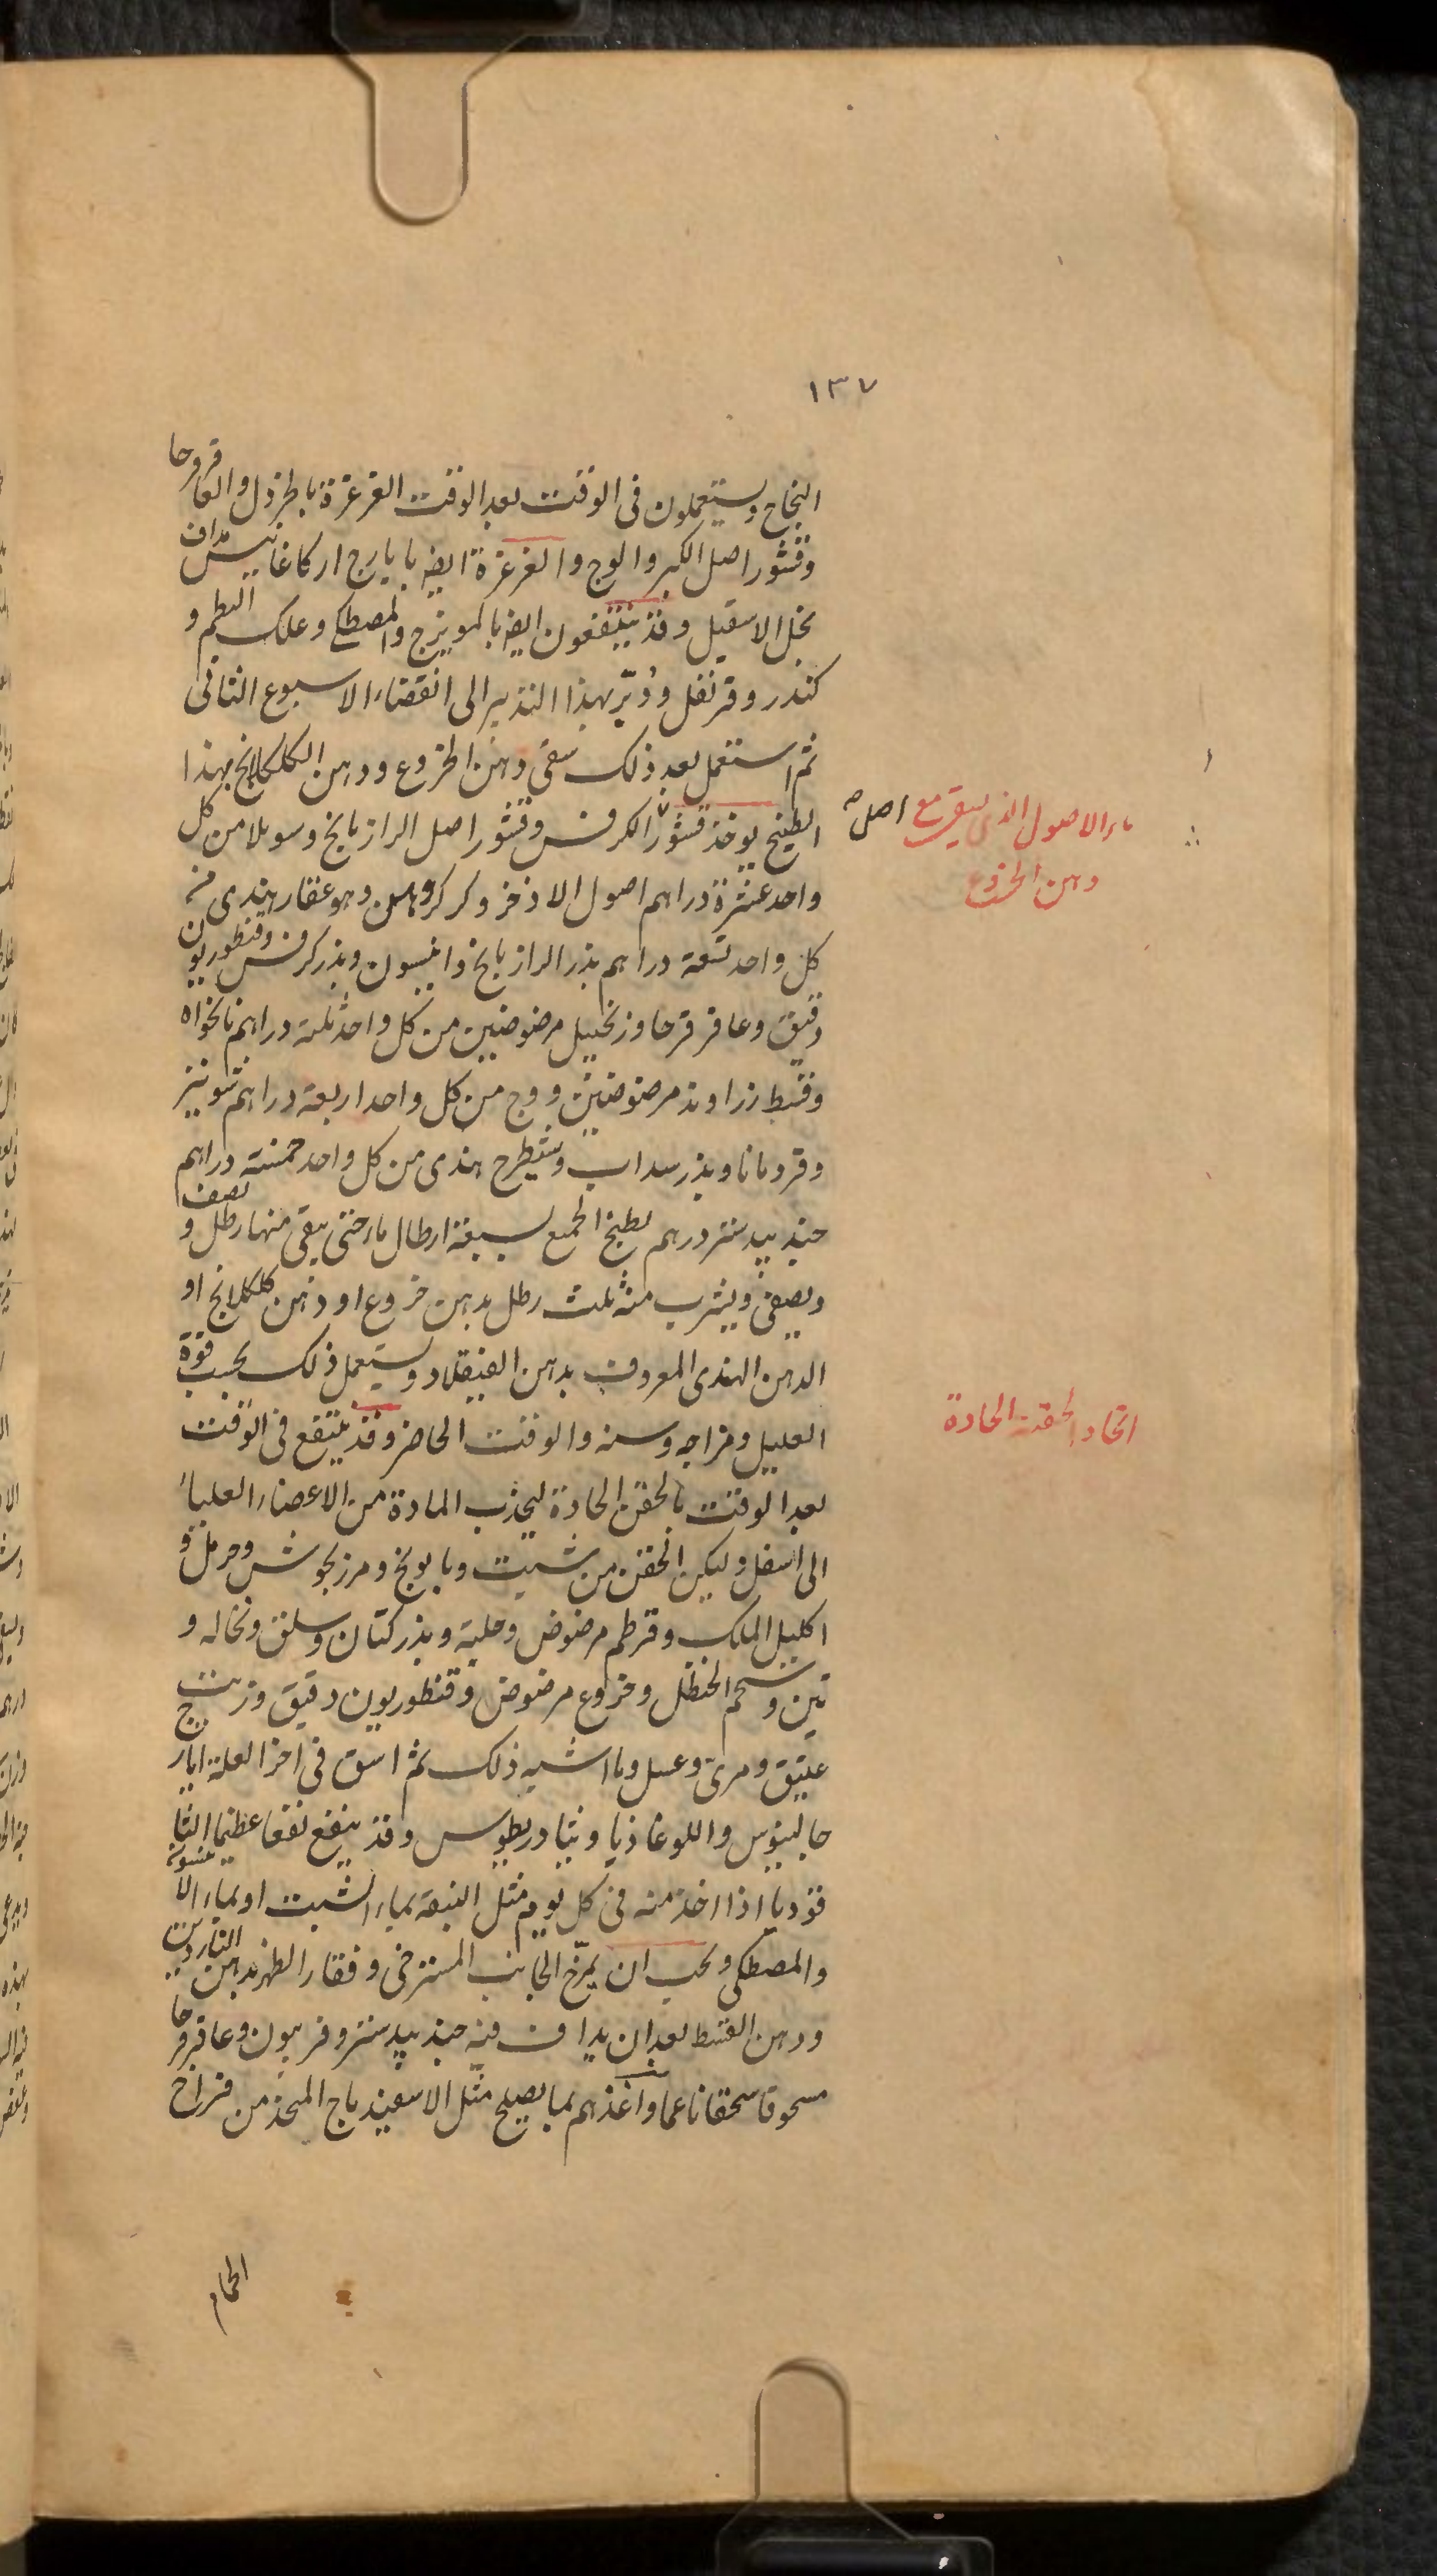 ١٣٧
النجاح ويستعملون فى الوقت بعد الوقت الغرغرة بالخردل والعاقرقرحا
وقشور اصل الكبر والوج والغرغرة ايضا بايارج اركاغانيس مداف
بخل الاسقيل وقد ينتفعون ايضا بالمويزج والمصطكى وعلك البطم و
كندر وقرنفل ودُبّر بهذا التدبير الى انقضاء الاسبوع الثانى
ثم استعمل بعد ذلك سقى دهن الخروع ودهن الكلكلانج بهذا
الطبيخ يوخذ قشور الكرفس وقشور اصل الرازيانج وسوبلا من كل
واحد عشرة دراهم اصول الاذخر وكركروهن وهو عقار هندى من
كل واحد تسعة دراهم بذر الرازيانج وانيسون وبذر كرفس وقنطوريون
دقيق وعاقرقرحا وزنجبيل مرضوضين من كل واحد ثلثة دراهم نانخواه
وقسط زراوند مرضوضين ووج من كل واحد اربعة دراهم شونيز
وقردمانا وبذر سداب وشيطرج هندى من كل واحد خمسة دراهم
جندبيدستر درهم يطبخ الجميع بسبعة ارطال ماء حتى يبقى منها رطل و نصف
ويصفى ويشرب منه ثلث رطل بدهن خروع او دهن كلكلانج او
الدهن الهندى المعروف بدهن ويستعمل ذلك بحسب قوة
العليل ومزاجه وسنه والوقت الحاضر وقد ينتفع فى الوقت
بعد الوقت بالحقن الحادة ليجذب المادة من الاعضاء العليا
الى اسفل وليكن الحقن من شبت وبابونج ومرزنجوش وحرمل و
اكليل الملك وقرطم مرضوض وحلبة وبذر كتان وسلق ونخاله و
تين وشحم الحنظل وخروع مرضوض وقنطوريون دقيق وزيت
عتيق ومرى وعسل وما اشبه ذلك ثم اسق فى اخر العلة ايارج
جالينوس واللوغاذيا وتيادريطوس وقد ينفع نفعا عظيما انقا
قرديا اذا اخذ منه فى كل يوم مثل النبقة بماء الشبت او بماء الانيسون
والمصطكى ويجب ان يمرّخ الجانب المسترخى وفقار الظهر بدهن الناردين
ودهن القسط بعد ان يداف فيه جندبيدستر وفربيون وعاقرقرحا
مسحوقا سحقا ناعما واغذهم بما يصلح مثل الاسفيدباج المتخذ من فراخ
الحمام
ماء الاصول الذى يسقى مع
دهن الخروع
اصل صح
اتخاذ الحقنة الحادة